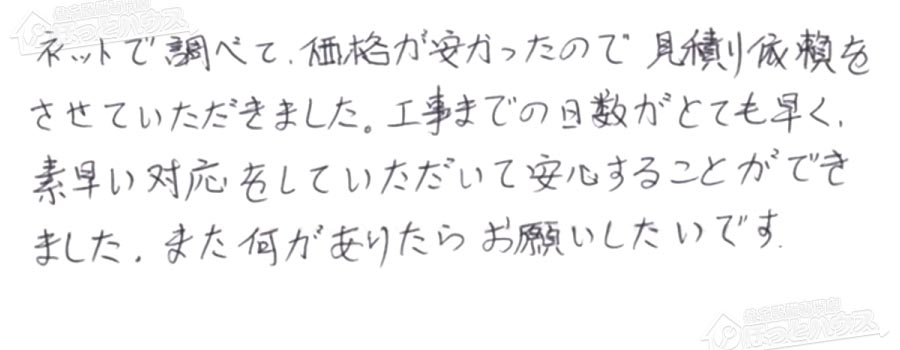 ネットで調べて、価格が安かったので見積り依頼を
させていただきました。工事までの日数がとても早く、
素早い対応をしていただいて安心することができ
ました。また何がありたらお願いしたいです.
ほっとハウス